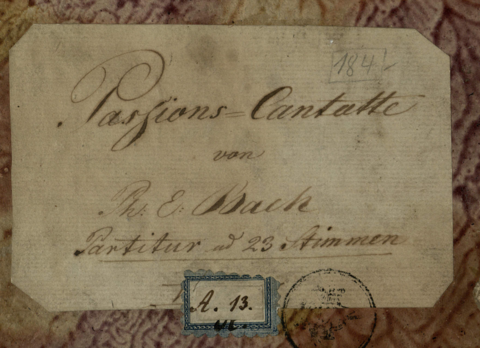 184
Passions=Cantatte
von
Ph: E: Bach
Partitur ad 23 Stimmen
A. 13.